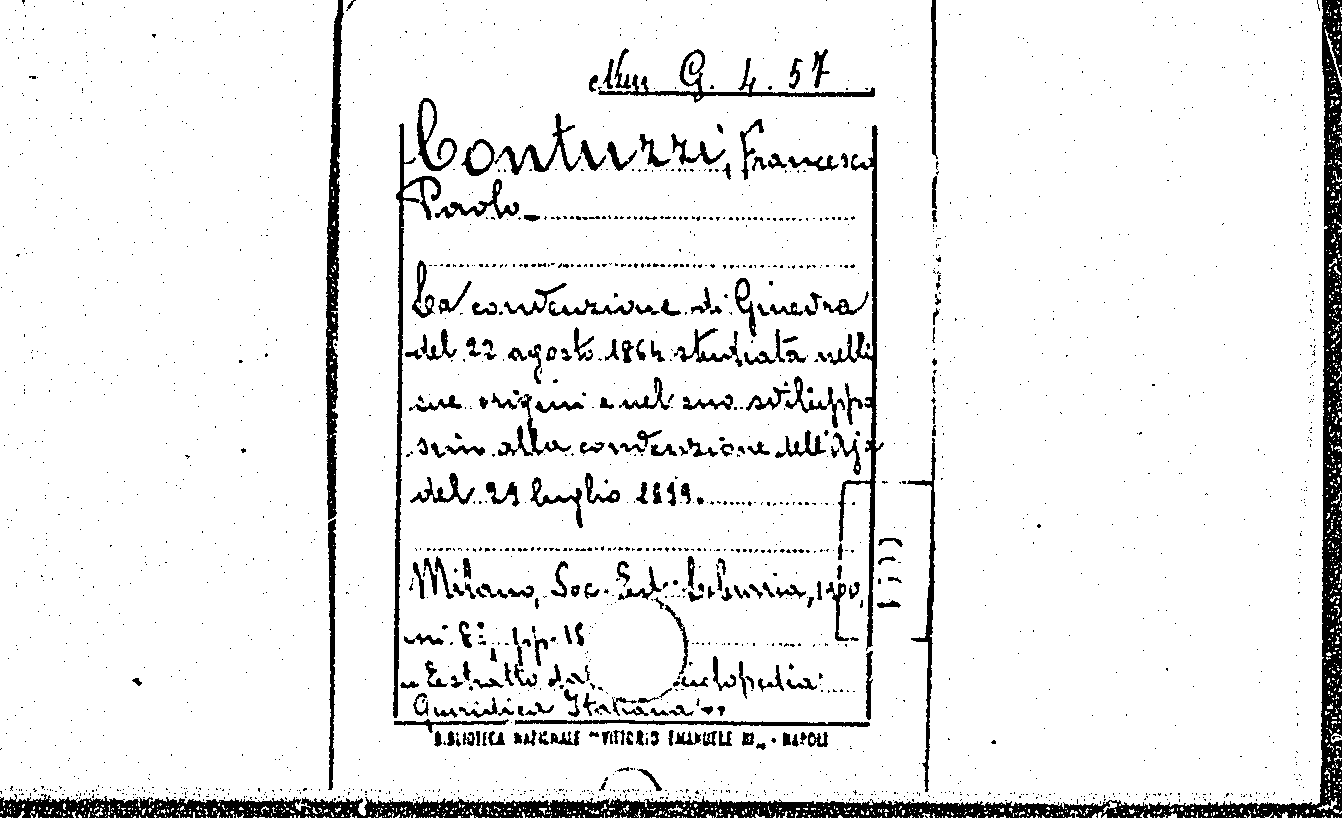 Mm G. 4. 57
Contuzzi, Francesco
Paolo_
La convenzione di Ginevra
del 22 agosto 1864 studiata nelle
sue origini e nel suo sviluppo
sino alla convenzione dell'Aja
del 29 luglio 1899.
Milano, Soc. Ed. Libraria, 1900,
in 8°, pp. 15
« Estratto da ciclopedia
Giuridica Italiana ».
BIBLIOTECA NAZIONALE "VITTORIO EMANUELE III„ - NAPOLI